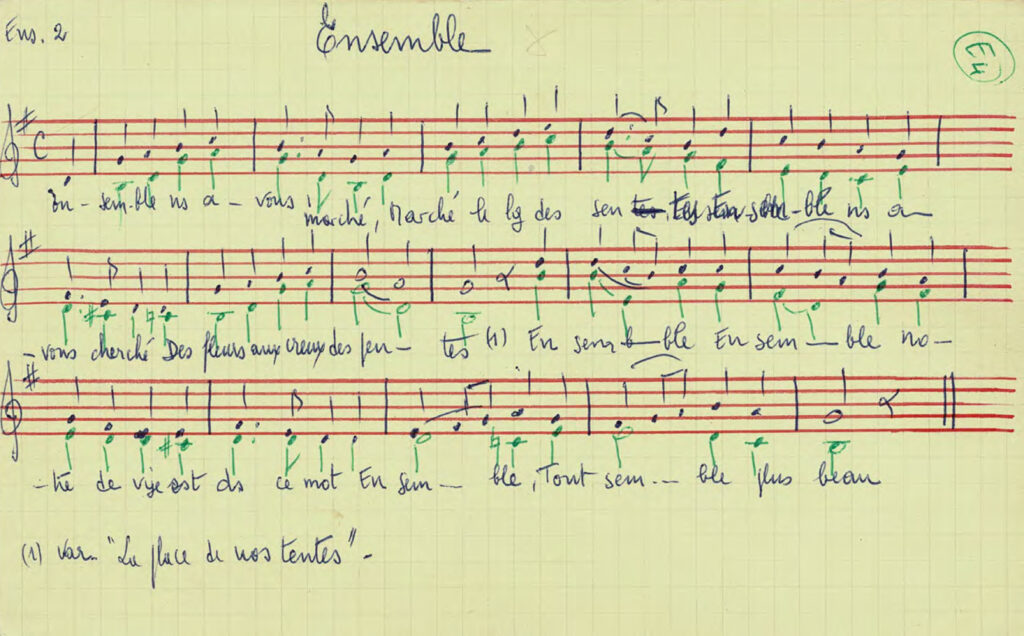 Ens. 2
Ensemble
E4
En - sem-ble ns a - vous marché, Marché le lg des sen tes, Ensem-ble ns a
- vous cherché Des fleurs aux creux des fen - tes (1) En sem - ble En sem - ble no -
- tre de vise est ds ce mot En sem - ble, Tout sem -- ble plus beau
(1) var. "La place de nos tentes" -